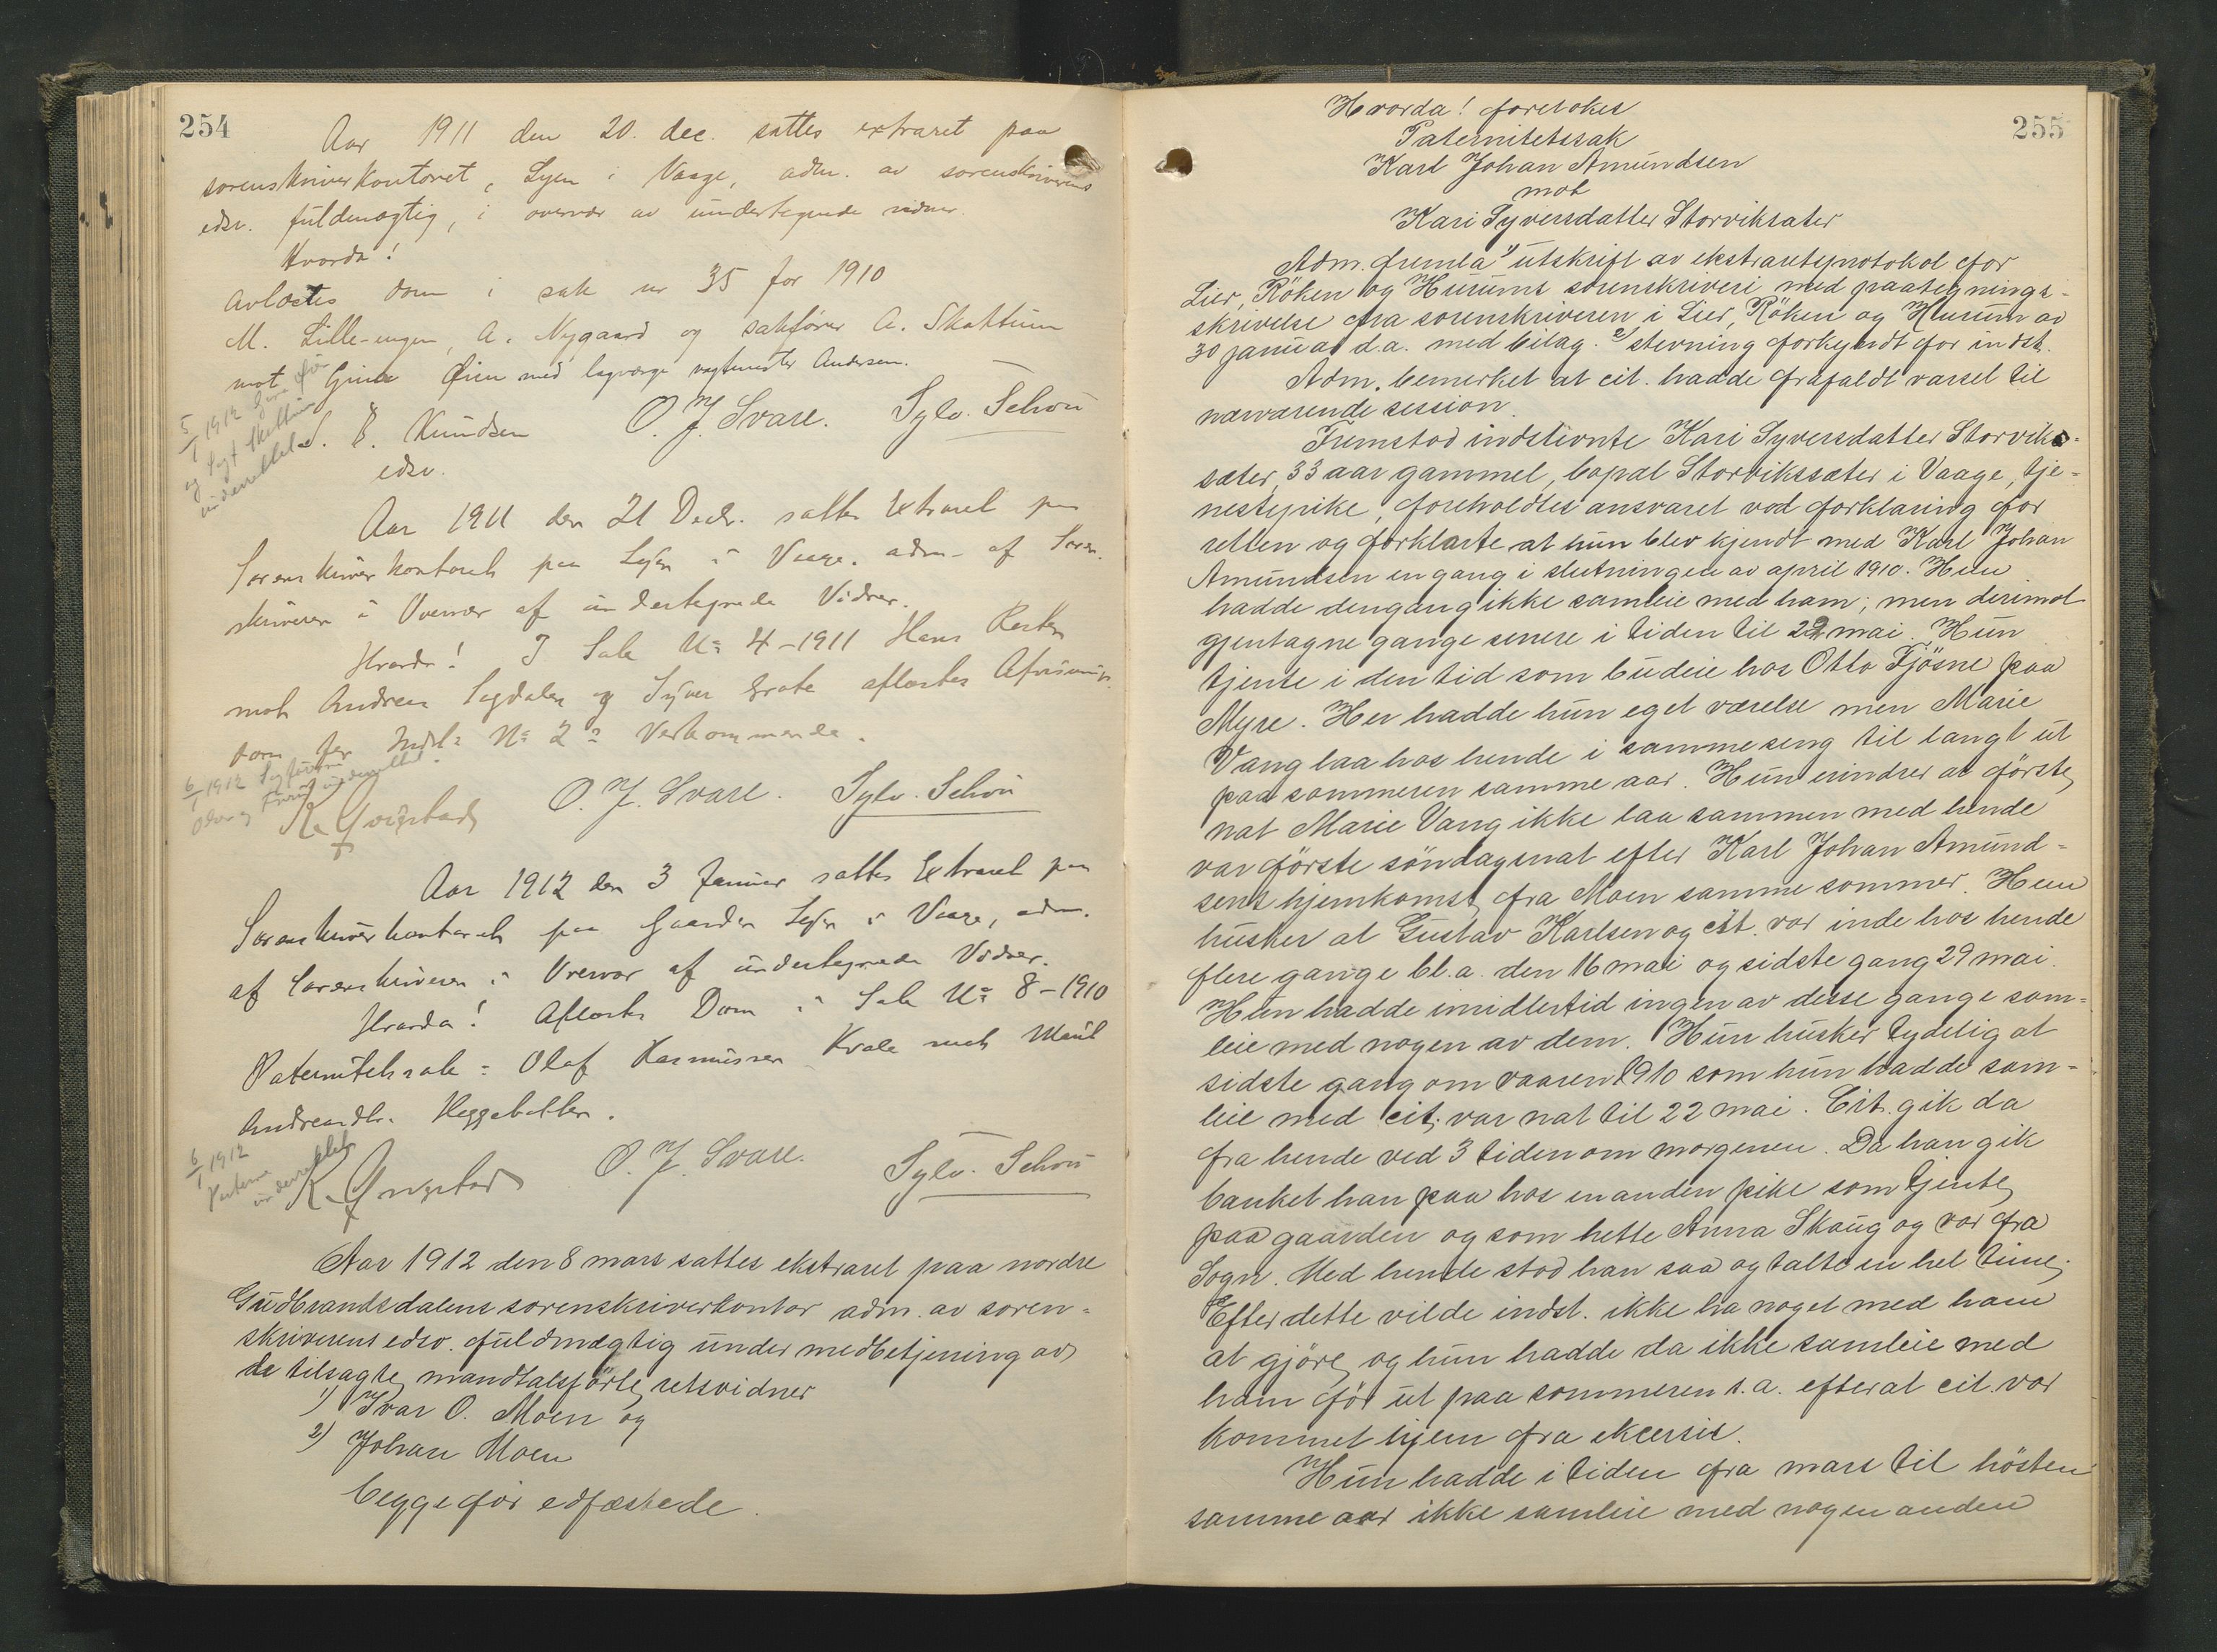 254
Aar 1911 den 20. dec. sattes extraret paa
sorenskriverkontoret, Syen i Vaage, adm. av sorenskriverens
edsv. fuldmægtig, i overvær av undertegnede vidner.
Hvorda!
Avlæstes dom i sak nr 35 for 1910
M. Lille-engen, A. Nygaard og sakfører A. Skattum
mot Gina Øien med lagværge vagtmester Andersen.
5/1 1912
og Sagf. Skattum
underrettet
S. E. Knudsen O. J. Svare. Sylv. Schou
edsv.
Aar 1911 den 21 Decbr. sattes Extraret paa
Sorenskriverkontoret paa Syen i Vaage. adm. af Soren-
skriveren i Overvær af undertegnede Vidner.
Hvorda! I Sak No 4-1911 Hans
mot Andreas og Syver aflæstes Afvisnings
dom for Indst. No 2s Vedkommende.
6/1 1912
O. J. Svare. Sylv. Schou
Aar 1912 den 3 Januar sattes Extraret paa
Sorenskriverkontoret paa Gaarden Syen i Vaage, adm.
af Sorenskriveren i Overvær af undertegnede Vidner.
Hvorda! Aflæstes Dom i Sak No 8-1910
Paternitetssak: Olaf Rasmussen Kvale mot Marit
Andreasdtr.
6/1 1912
Parterne
underrettet
O. J. Svare. Sylv. Schou
Aar 1912 den 8 mars sattes ekstraret paa nordre
Gudbrandsdalens sorenskriverkontor adm. av soren-
skriverens edsv. fuldmægtig under medbetjening av
de tilsagte, mandtalsförte retsvidner
1) Ivar O. Moen og
2) Johan Moen
begge för edfæstede.
255
Hvorda! foretokes
Paternitetssak
Karl Johan Amundsen
mot
Kari Syversdatter Storviksæter
Adm. fremla 1) utskrift av ekstraretsprotokol for
Lier, Röken og Hurums sorenskriveri med paategnings-
skrivelse fra sorenskriveren i Lier, Röken og Hurum av
30 januar d.a. med bilag. 2) stevning forkyndt for indst.
Adm. bemerket at cit. hadde frafaldt varsel til
nærværende session.
Fremstod indstevnte Kari Syversdatter Storvik-
sæter, 33 aar gammel, bopæl Storvikssæter i Vaage, tje-
nestepike, foreholdtes ansvaret ved forklaring for
retten og forklarte at hun blev kjendt med Karl Johan
Amundsen en gang i slutningen av april 1910. Hun
hadde dengang ikke samleie med ham; men derimot
gjentagne gange senere i tiden til 22 mai. Hun
tjente i den tid som budeie hos Otto Fjösne paa
Myre. Her hadde hun eget værelse men Marie
Vang laa hos hende i samme seng til langt ut
paa sommeren samme aar. Hun erindrer at förste
nat Marie Vang ikke laa sammen med hende
var förste söndagsnat efter Karl Johan Amund-
sens hjemkomst fra Moen samme sommer. Hun
husker at Gustav Karlsen og cit. var inde hos hende
flere gange bl.a. den 16 mai og sidste gang 29 mai.
Hun hadde imidlertid ingen av disse gange sam-
leie med nogen av dem. Hun husker tydelig at
sidste gang om vaaren 1910 som hun hadde sam-
leie med cit. var nat til 22 mai. Cit. gik da
fra hende ved 3 tiden om morgenen. Da han gik
banket han paa hos en anden pike som tjente
paa gaarden og som hette Anna Skaug og var fra
Sogn. Med hende stod han saa og talte en hel time.
Efter dette vilde indst. ikke ha noget med ham
at gjöre, og hun hadde da ikke samleie med
ham för ut paa sommeren s.a. efterat cit. var
kommet hjem fra ekcersis.
Hun hadde i tiden fra mars til hösten
samme aar ikke samleie med nogen anden